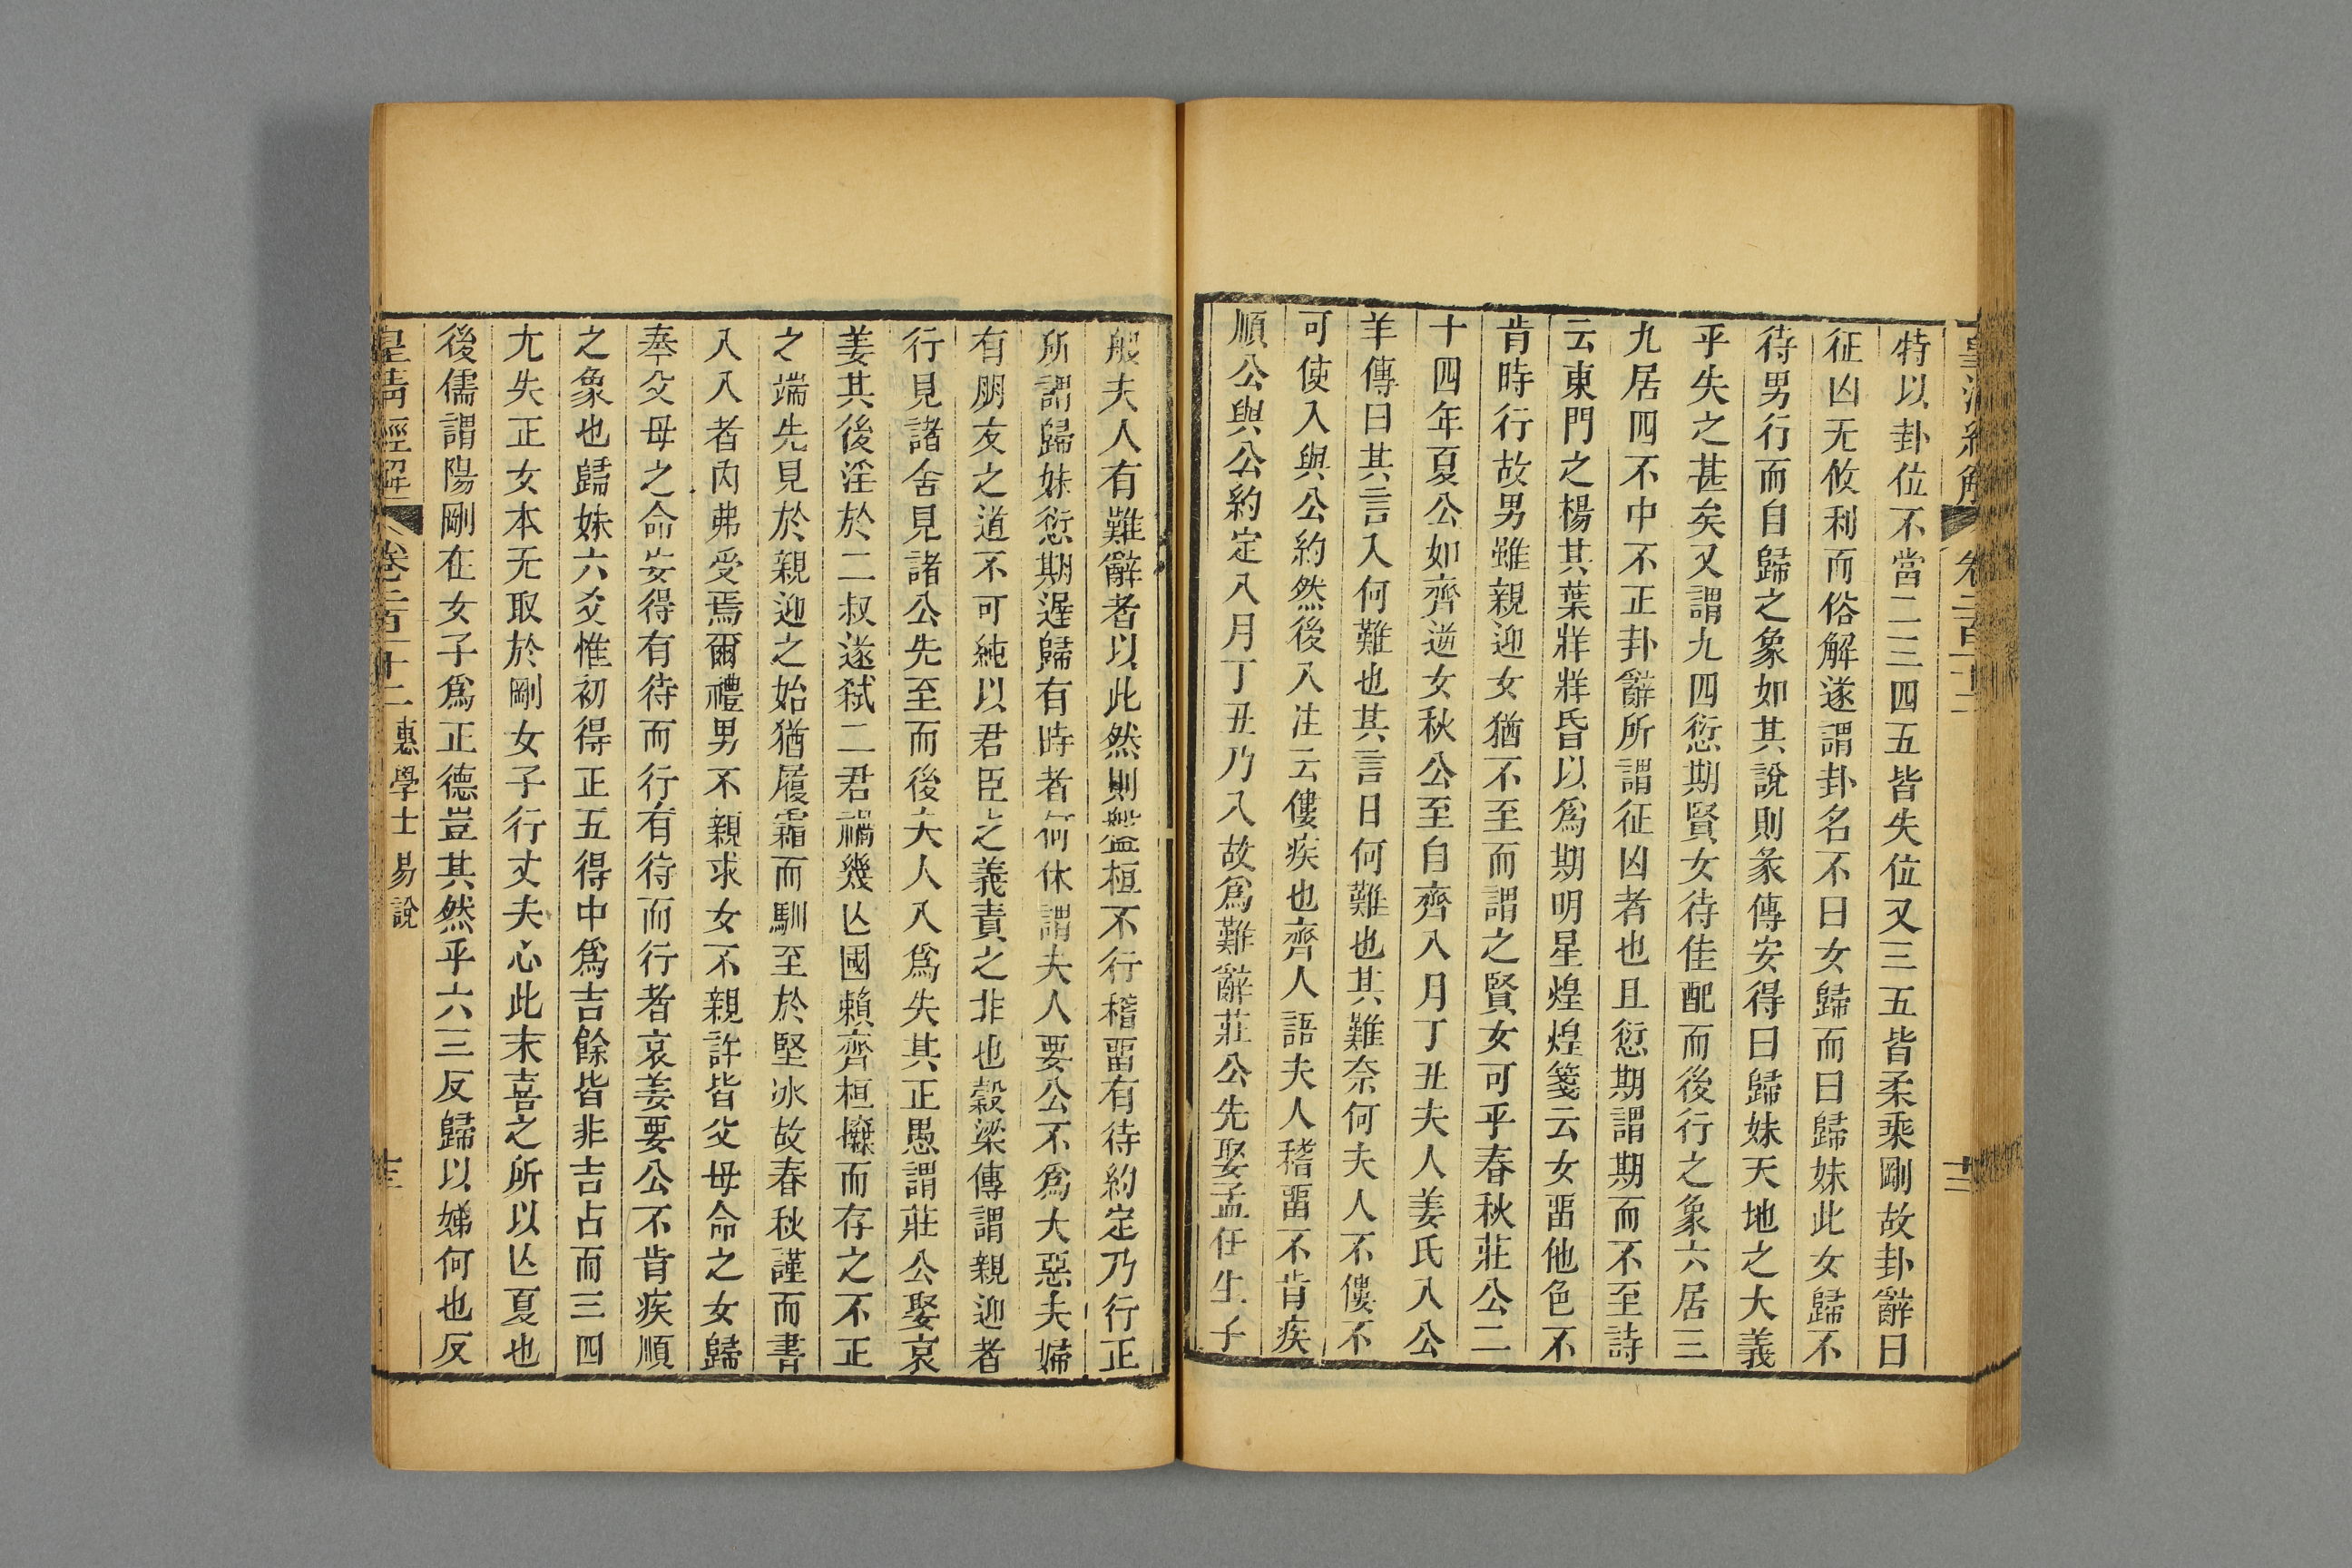 皇清經解 卷二百十二 十三
特以卦位不當二三四五皆失位又三五皆柔乘剛故卦辭曰
征凶无攸利而俗解遂謂卦名不曰女歸而曰歸妹此女歸不
待男行而自歸之象如其說則彖傳安得曰歸妹天地之大義
乎失之甚矣又謂九四愆期賢女待佳配而後行之象六居三
九居四不中不正卦辭所謂征凶者也且愆期謂期而不至詩
云東門之楊其葉牂牂昏以爲期明星煌煌箋云女畱他色不
肯時行故男雖親迎女猶不至而謂之賢女可乎春秋莊公二
十四年夏公如齊逆女秋公至自齊八月丁丑夫人姜氏入公
羊傳曰其言入何難也其言日何難也其難奈何夫人不僂不
可使入與公約然後入注云僂疾也齊人語夫人稽畱不肯疾
順公與公約定八月丁丑乃入故爲難辭莊公先娶孟任生子
般夫人有難辭者以此然則盤桓不行稽畱有待約定乃行正
所謂歸妹愆期遲歸有時者何休謂夫人要公不爲大惡夫婦
有朋友之道不可純以君臣之義責之非也穀梁傳謂親迎者
行見諸舍見諸公先至而後夫人入爲失其正愚謂莊公娶哀
姜其後淫於二叔遂弑二君禍幾亾國賴齊桓撥而存之不正
之端先見於親迎之始猶履霜而馴至於堅冰故春秋謹而書
入入者內弗受焉爾禮男不親求女不親許皆父母命之女歸
奉父母之命安得有待而行有待而行者哀姜要公不肯疾順
之象也歸妹六爻惟初得正五得中爲吉餘皆非吉占而三四
尤失正女本无取於剛女子行丈夫心此末喜之所以亾夏也
後儒謂陽剛在女子爲正德豈其然乎六三反歸以娣何也反
皇清經解 卷二百十二 惠學士易說 十三